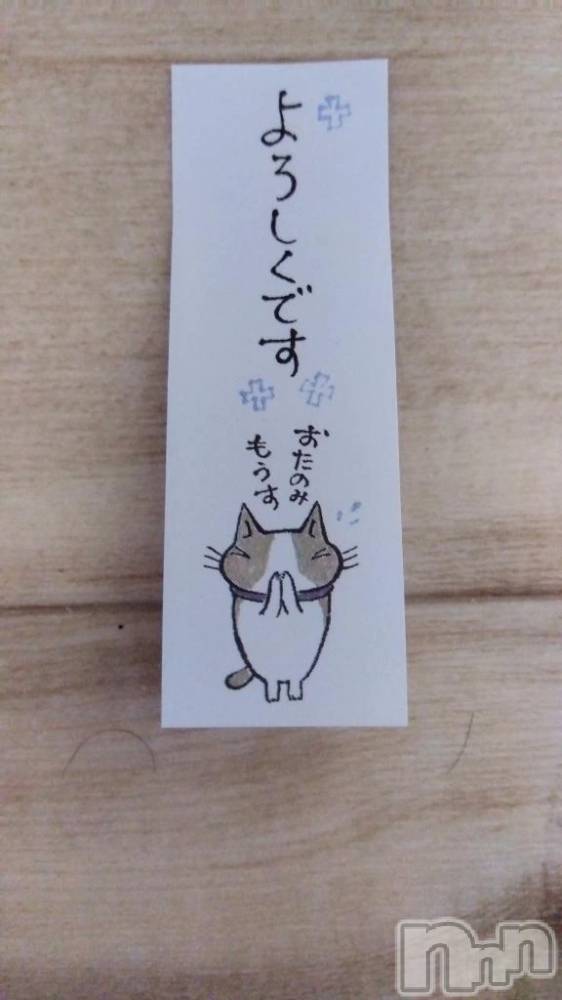 よろしくです
おたのみ
もうす
Nnn